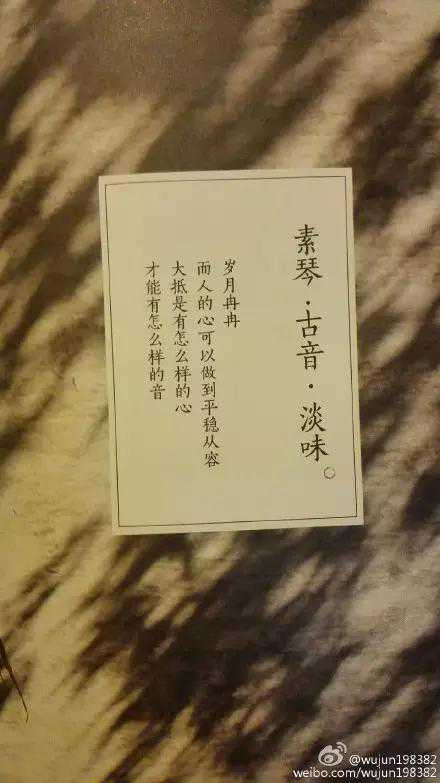 素琴·古音·淡味。
岁月冉冉
而人的心可以做到平稳从容
大抵是有怎么样的心
才能有怎么样的音
@wujun198382
weibo.com/wujun198382